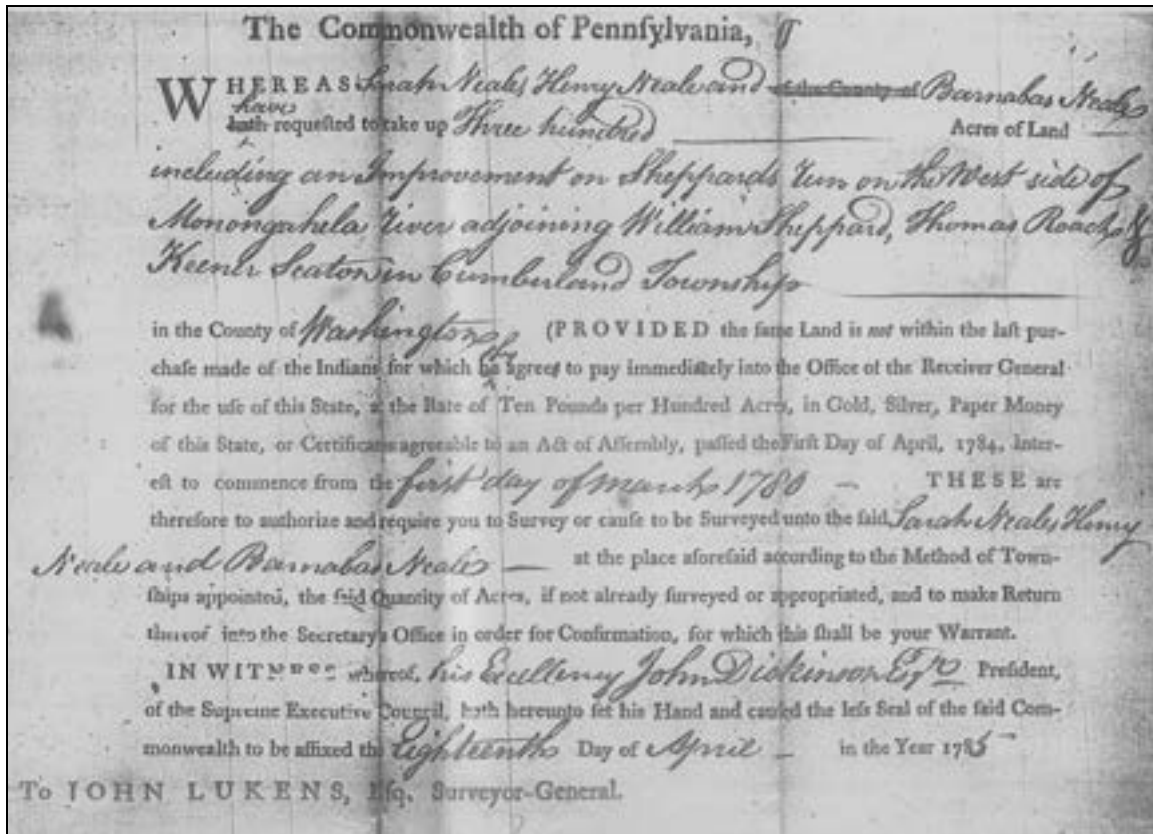 The Commonwealth of Pennſylvania, ſſ
WHEREAS Sarah Neale, Henry Neale and of the County of Barnabas Neale
have
hath requeſted to take up Three hundred Acres of Land
including an Improvement on Sheppards Run on the West side of
Monongahela River adjoining William Sheppard, Thomas Roach, &
Keener Seaton in Cumberland Township
in the County of Washington (PROVIDED the ſame Land is not within the laſt pur-
they
chaſe made of the Indians for which he agrees to pay immediately into the Office of the Receiver General
for the uſe of this State, at the Rate of Ten Pounds per Hundred Acres, in Gold, Silver, Paper Money
of this State, or Certificates agreeable to an Act of Aſſembly, paſſed the Firſt Day of April, 1784, Inter-
eſt to commence from the first day of March 1780 — THESE are
therefore to authorize and require you to Survey or cauſe to be Surveyed unto the ſaid, Sarah Neale, Henry
Neale and Barnabas Neale — at the place aforeſaid according to the Method of Town-
ſhips appointed, the ſaid Quantity of Acres, if not already ſurveyed or appropriated, and to make Return
thereof into the Secretary's Office in order for Confirmation, for which this ſhall be your Warrant.
IN WITNESS whereof, his Excellency John Dickinson Esqr. Preſident,
of the Supreme Executive Council, hath hereunto ſet his Hand and cauſed the leſs Seal of the ſaid Com-
monwealth to be affixed the Eighteenth Day of April — in the Year 1785
To JOHN LUKENS, Eſq. Surveyor-General.